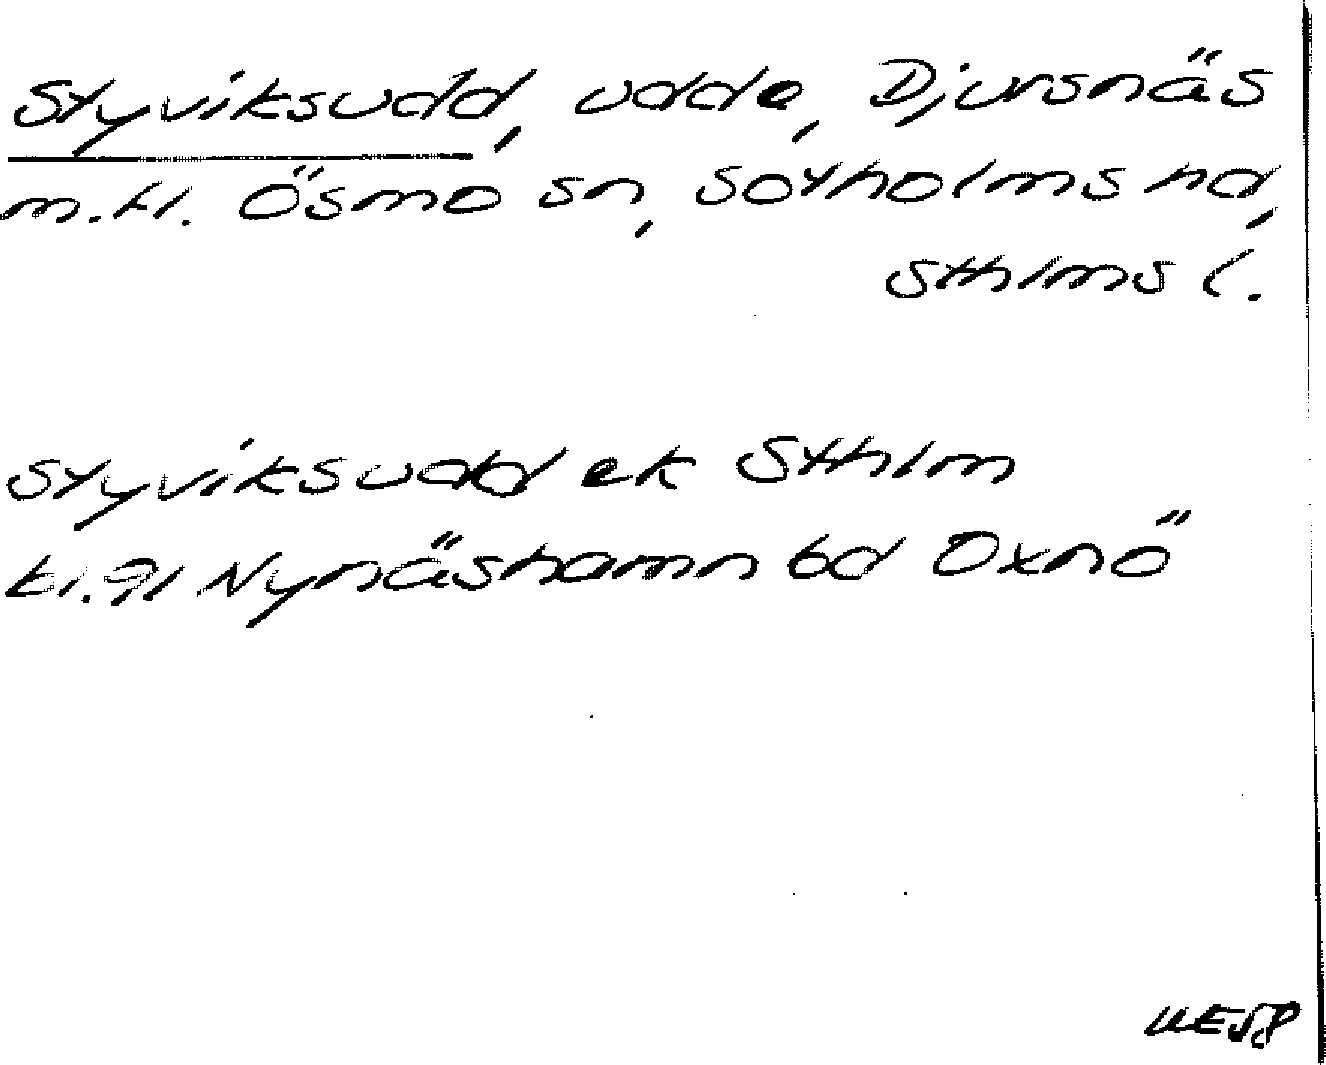 Styviksudd, udde, Djursnäs
m.fl. Ösmo sn, Sotholms hd,
Sthlms l.
Styviksudd ek Sthlm
bl. 91 Nynäshamn bd Oxnö